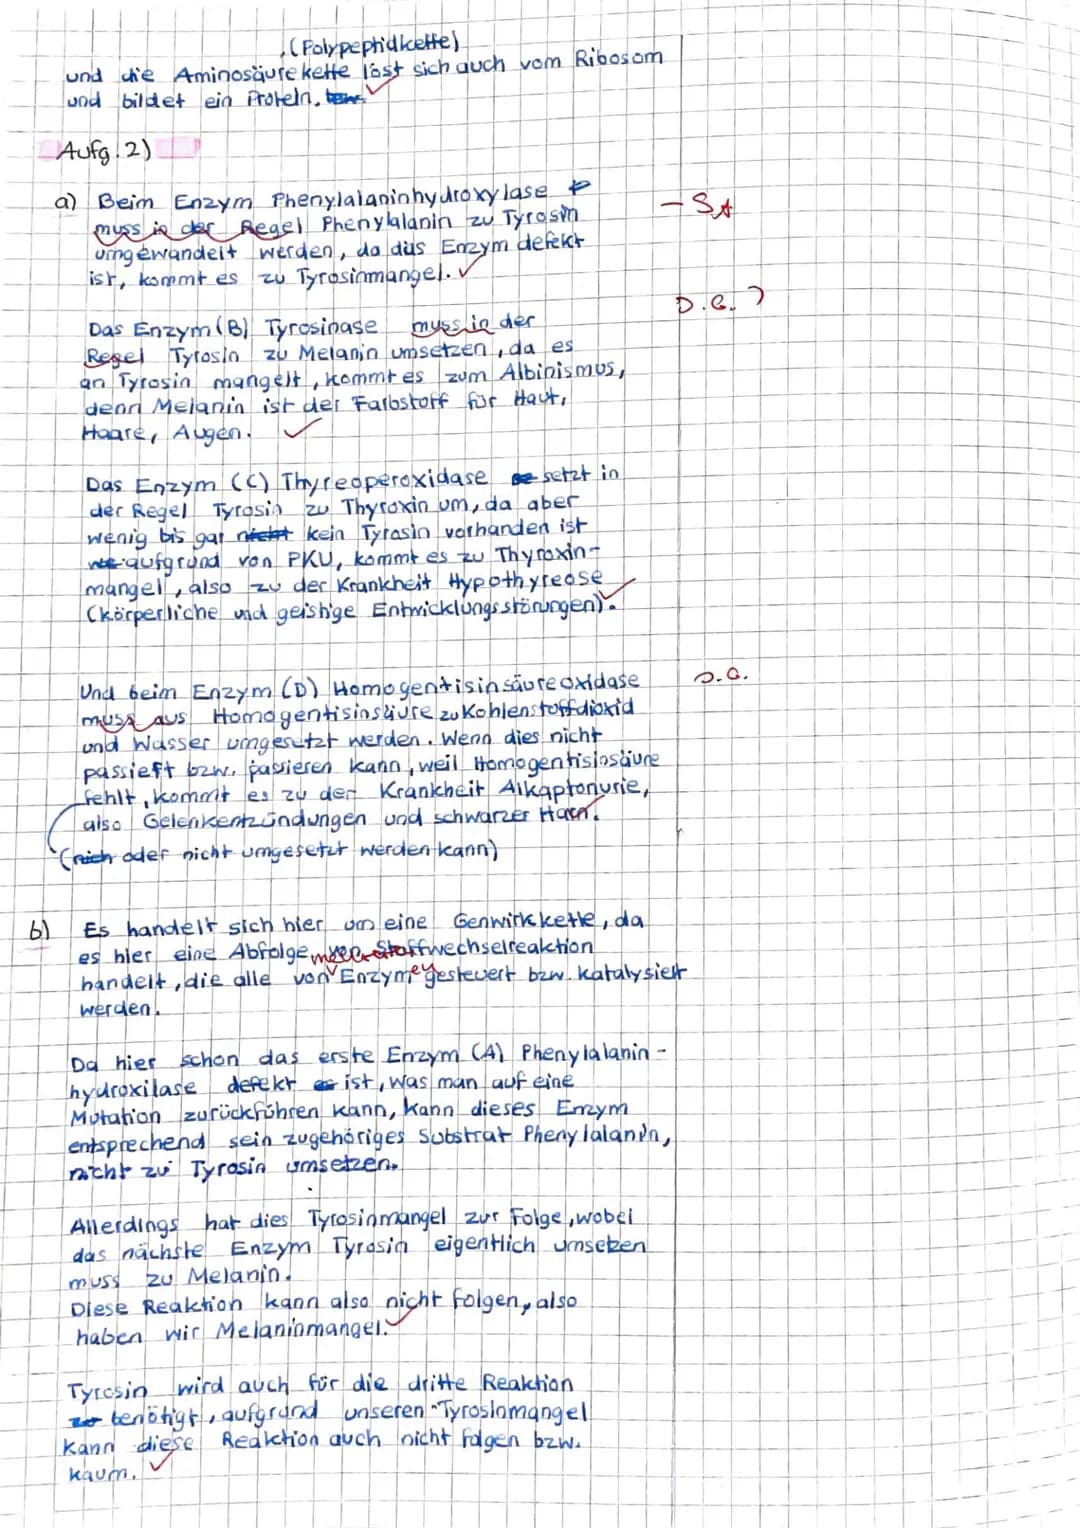 (Polypeptidkette)
und die Aminosäurekette löst sich auch vom Ribosom
und bildet ein Protein.
Aufg. 2)
a) Beim Enzym Phenylalaninhydroxylase
muss in der Regel Phenylalanin zu Tyrosin
umgewandelt werden, da das Enzym defekt
ist, kommt es zu Tyrosinmangel.
Das Enzym (B) Tyrosinase muss in der
Regel Tyrosin zu Melanin umsetzen, da es
an Tyrosin mangelt, kommt es zum Albinismus,
denn Melanin ist der Farbstoff für Haut,
Haare, Augen.
Das Enzym (C) Thyreoperoxidase setzt in
der Regel Tyrosin zu Thyroxin um, da aber
wenig bis gar nicht kein Tyrosin vorhanden ist
aufgrund von PKU, kommt es zu Thyroxin-
mangel, also zu der Krankheit Hypothyreose
(körperliche und geistige Entwicklungsstörungen).
Und beim Enzym (D) Homogentisinsäureoxidase
muss aus Homogentisinsäure zu Kohlenstoffdioxid
und Wasser umgesetzt werden. Wenn dies nicht
passiert bzw. passieren kann, weil Homogentisinsäure
fehlt, kommt es zu der Krankheit Alkaptonurie,
also Gelenkentzündungen und schwarzer Harn.
(nich oder nicht umgesetzt werden kann)
b) Es handelt sich hier um eine Genwirkkette, da
es hier eine Abfolge von Stoffwechselreaktion
handelt, die alle von Enzymen gesteuert bzw. katalysiert
werden.
Da hier schon das erste Enzym (A) Phenylalanin-
hydroxilase defekt ist, was man auf eine
Mutation zurückführen kann, kann dieses Enzym
entsprechend sein zugehöriges Substrat Phenylalanin,
nicht zu Tyrosin umsetzen.
Allerdings hat dies Tyrosinmangel zur Folge, wobei
das nächste Enzym Tyrosin eigentlich umsetzen
muss zu Melanin.
Diese Reaktion kann also nicht folgen, also
haben wir Melaninmangel.
Tyrosin wird auch für die dritte Reaktion
benötigt, aufgrund unseren Tyrosinmangel
kann diese Reaktion auch nicht folgen bzw.
kaum.